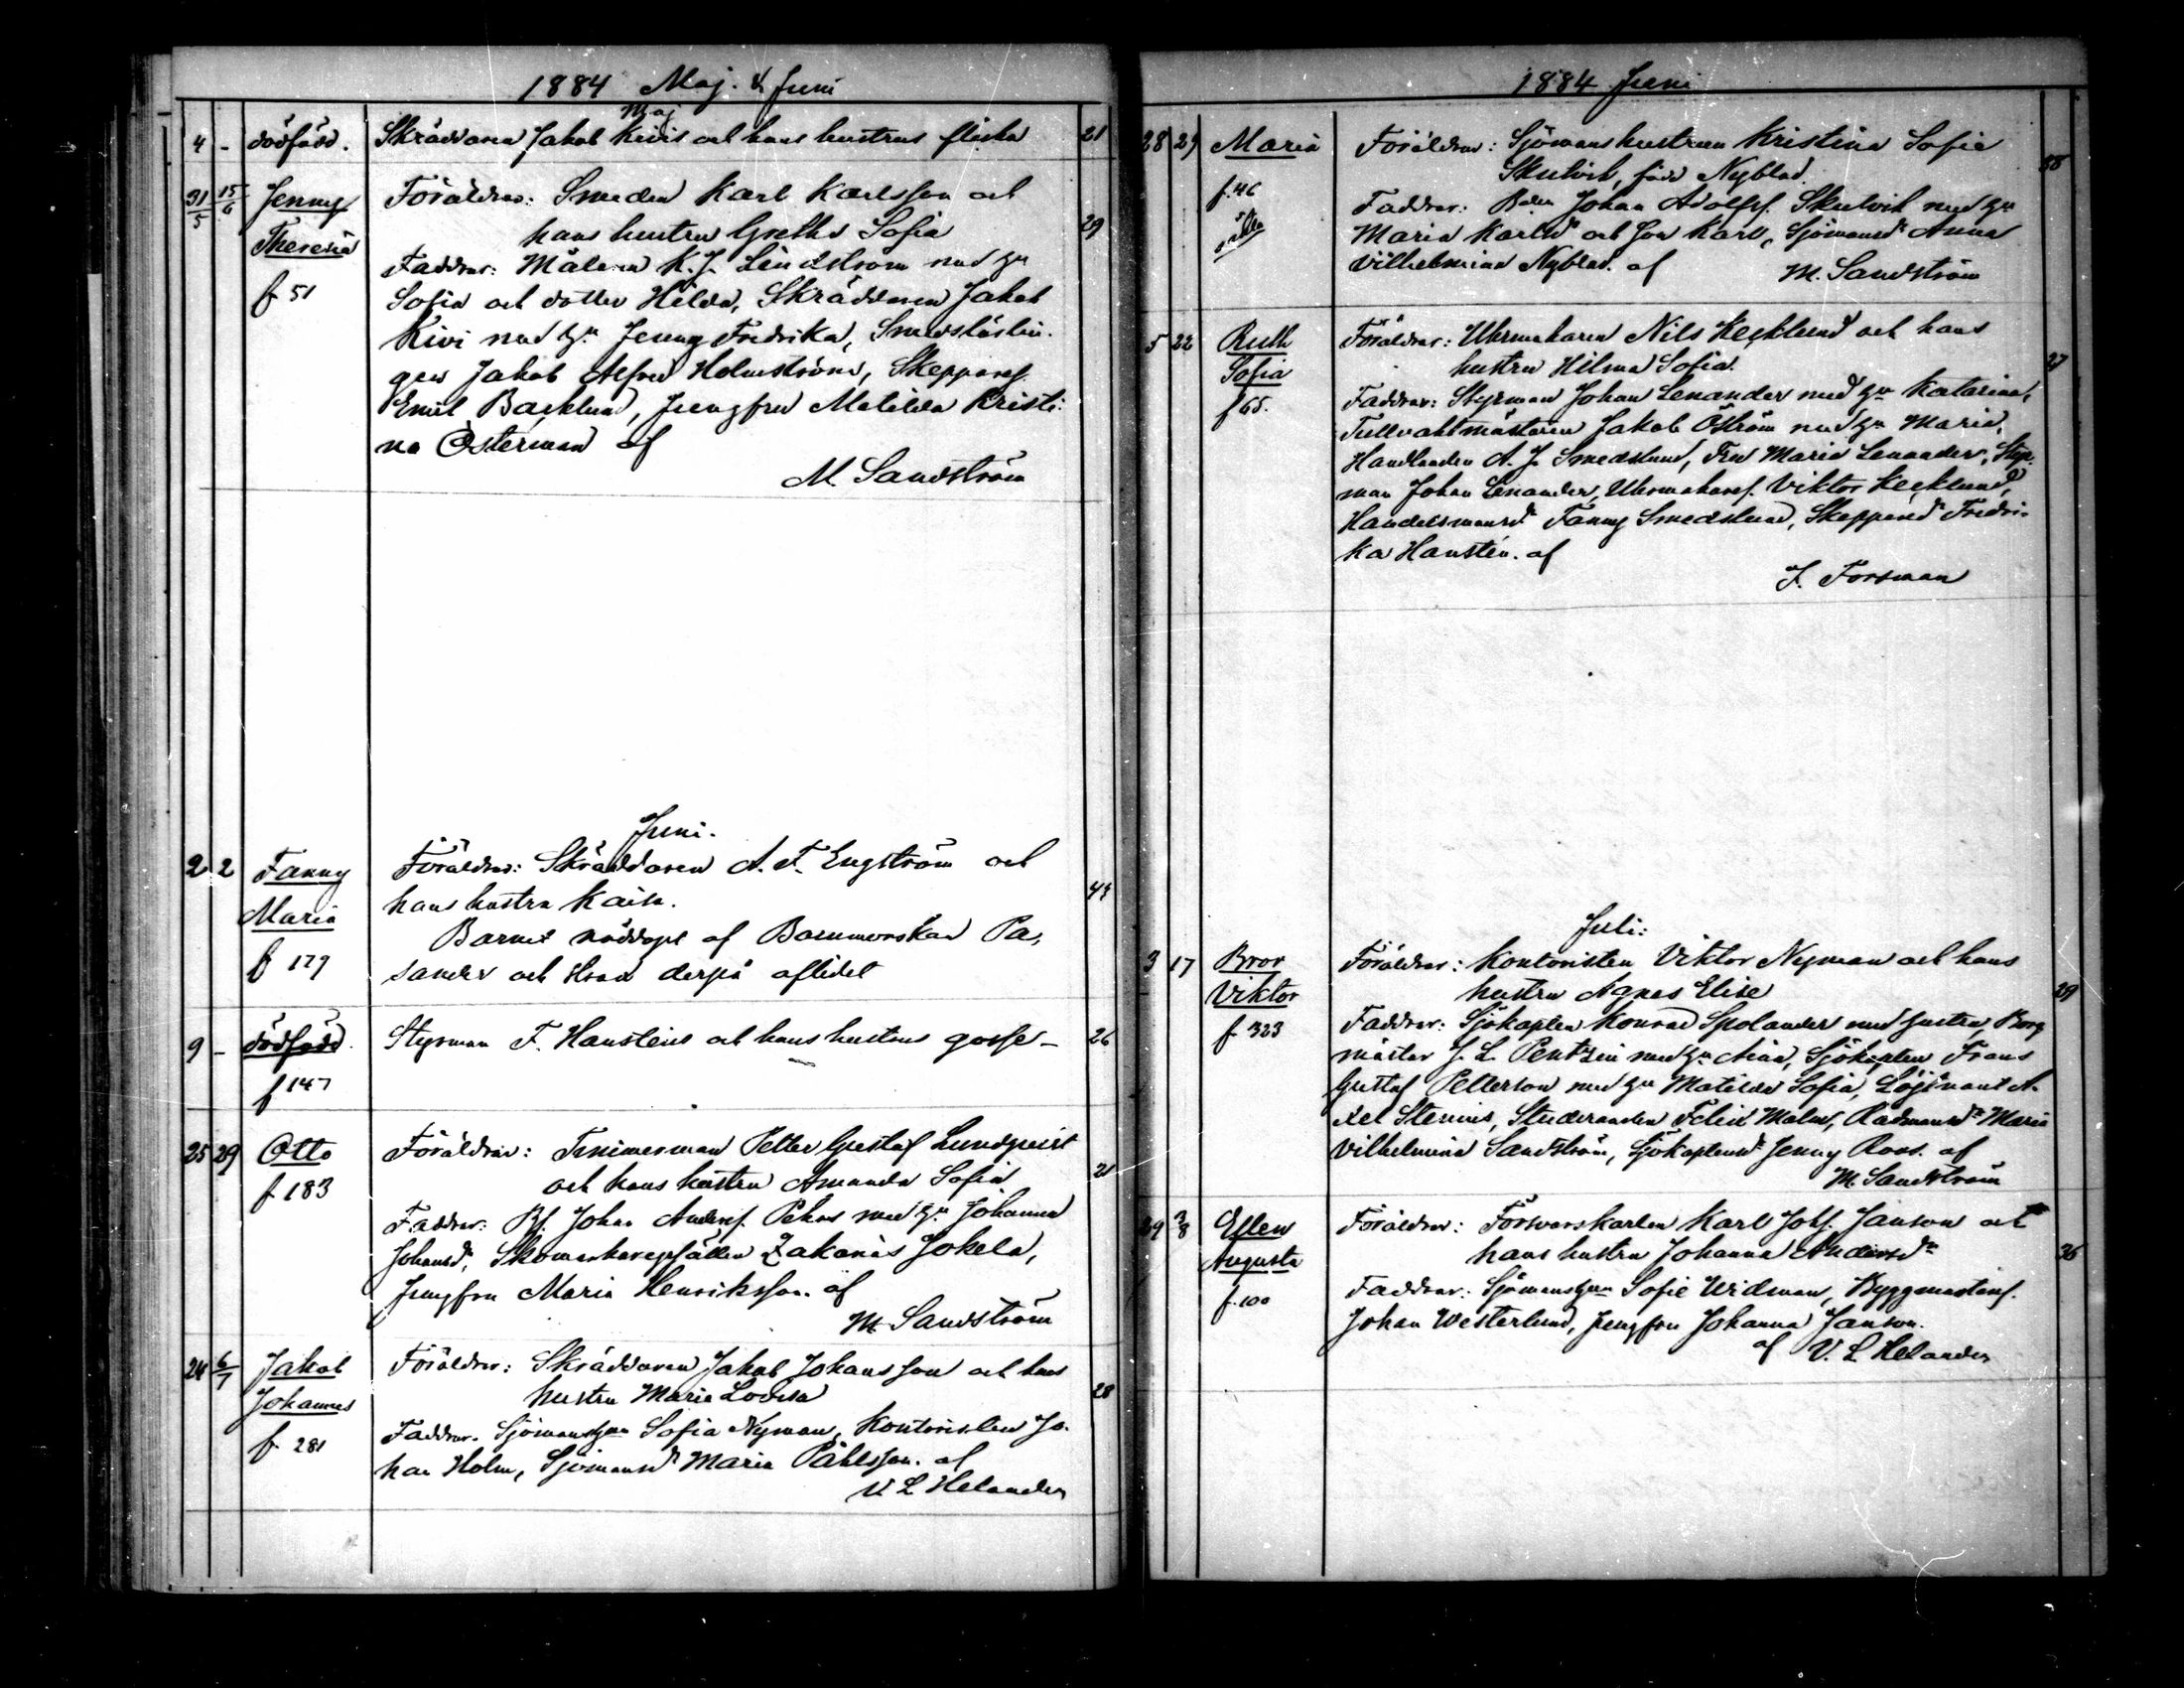 1884 Maj. & Juni
Maj
4 - dödfödd. Skräddaren Jakob Kivis och hans hustrus flicka 21
31/5 15/6 Jenny Föräldrar: Smeden Karl Karlsson och
Theresia hans hustru Greta Sofia 29
f 51 Faddrar: Målaren K. J. Lindström med hu
Sofia och dotter Hilda, Skräddaren Jakob
Kivi med hu Jenny Fredrika, Smedslärlin-
gen Jakob Alfred Holmström, Skepparef.
Emil Backlund, Jungfru Matilda Kristi-
na Österman af
M. Sandström
Juni.
2 2 Fanny Föräldrar: Skräddaren A. F. Engström och
Maria hans hustru Kaisa. 44
f 179 Barnet nöddöpt af Barnmorskan Pa-
sander och strax derpå aflidet
9 - dödfödd. Styrman F. Hansténs och hans hustrus gosse - 26
f 147
25 29 Otto Föräldrar: Timmerman Petter Gustaf Lundqvist
f 183 och hans hustru Amanda Sofia 21
Faddrar: Bf. Johan Andersf. Pehus med hu Johanna
Johansdr, Skomakaregesällen Zakarias Jokela,
Jungfru Maria Henriksson. af
M. Sandström
24 6/7 Jakob Föräldrar: Skräddaren Jakob Johansson och hans
Johannes hustru Maria Lovisa 28
f. 281 Faddrar. Sjömanshun Sofia Nyman, Kontoristen Jo-
han Holm, Sjömansdr Maria Påhlsson. af
V. L Helander
1884 Juni
28 29 Maria Föräldrar: Sjömanshustrun Kristina Sofia
f. 46 Skulvik, född Nyblad. 38
Faddrar: Johan Adolff. Skulvik med hu
Maria Karlsdr och son Karl, Sjömansdr Anna
Vilhelmina Nyblad. af M. Sandström
5 22 Ruth Föräldrar: Uhrmakaren Nils Kecklund och hans
Sofia hustru Hilma Sofia. 27
f 65. Faddrar: Styrman Johan Lenander med hu Katarina,
Tullvaktmästaren Jakob Öström med hu Maria,
Handlanden A. J. Smedslund, Fru Maria Lenander, Styr-
man Johan Lenander, Uhrmakaref. Viktor Kecklund,
Handelsmansdr Fanny Smedslund, Skepparedr Fredri-
ka Hanstén. af
J. Forsman
Juli:
3 17 Bror Föräldrar: Kontoristen Viktor Nyman och hans
Viktor hustru Agnes Elise 29
f. 323 Faddrar: Sjökapten Konrad Spolander med hustru, Borg
mästar J. L. Pentzin med hu Aina, Sjökapten Frans
Gustaf Petterson med hu Matilda Sofia, Löjtnant A-
xel Stenius, Studeranden Felix Malm, Rådmansdr Maria
Vilhelmina Sandström, Sjökaptensdr Jenny Roos. af
M. Sandström
29 3/8 Ellen Föräldrar: Försvarskarlen Karl Johf. Janson och
Augusta hans hustru Johanna Andersdr 36
f. 100 Faddrar: Sjömanshun Sofie Widman, Byggmästaref.
Johan Westerlund, Jungfru Johanna Janson.
af V. L Helander